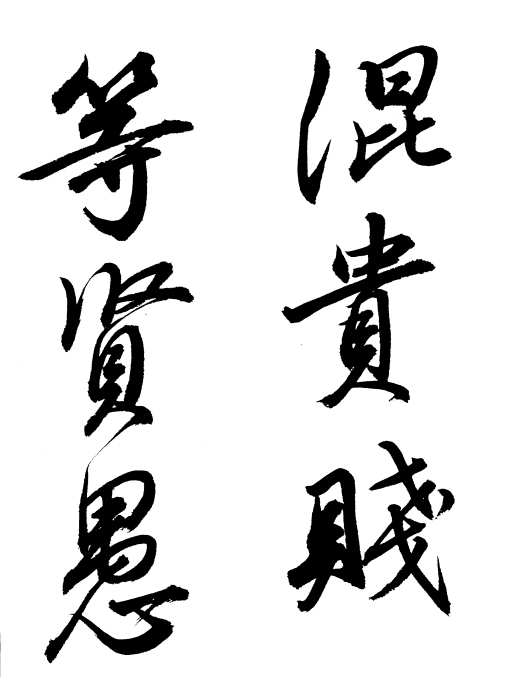 混貴賤
等賢愚